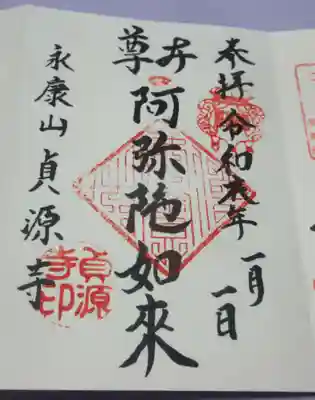 奉拝 令和年
一月
一日
本尊
阿弥陁如來
永康山貞源寺
貞源寺印